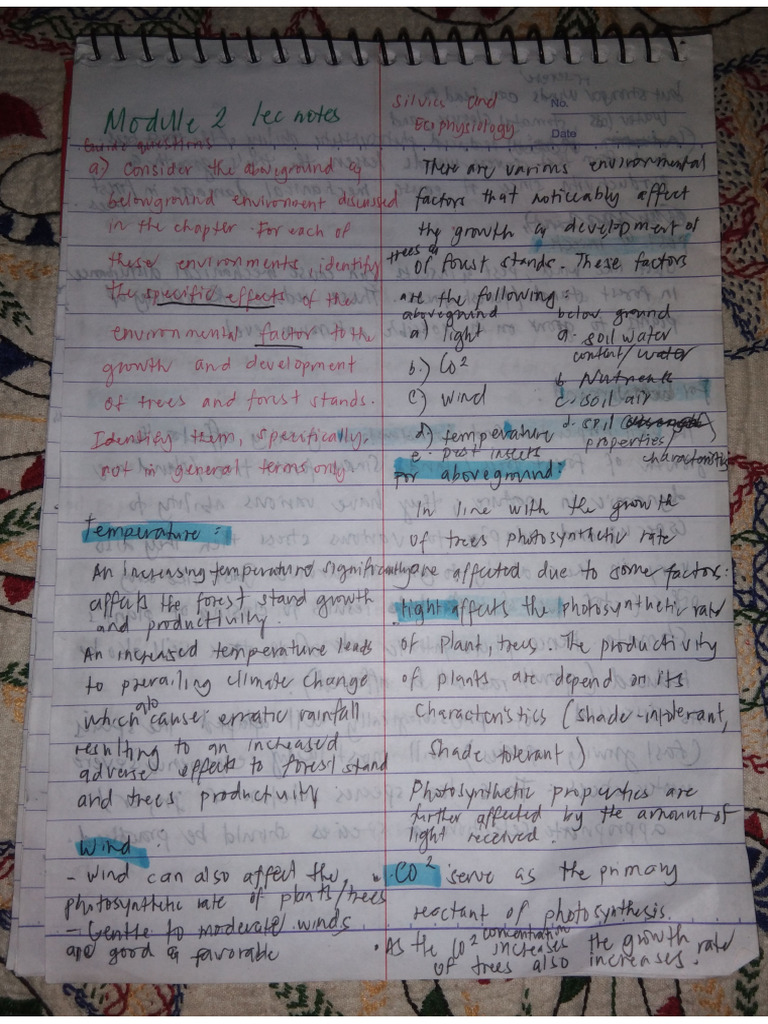 Module 2 lec notes
Guide questions
a) Consider the aboveground &
belowground environment discussed
in the chapter. For each of
these environments, identify
the specific effects of the
environmental factor to the
growth and development
of trees and forest stands.
Identify them, specifically,
not in general terms only.
Temperature:
An increasing temperature significantly
affects the forest stand growth
and productivity.
An increased temperature leads
to prevailing climate change
which also cause erratic rainfall
resulting to an increased
adverse effects to forest stand
and trees productivity
Wind:
- Wind can also affect the
photosynthetic rate of plants/trees
- Gentle to moderate winds
are good & favorable
Silvics and
Ecophysiology
No.
Date
There are various environmental
factors that noticeably affect
the growth & development of
trees &
of forest stands. These factors
are the following:
aboveground below ground
a) light a. soil water
content/water
b.) CO2 b. Nutrients
c) wind c. soil air
d) temperature d. soil
properties/
e. pest insects characteristics
For aboveground:
In line with the growth
of trees photosynthetic rate
are affected due to some factors:
. light affects the photosynthetic rate
of plant, trees. The productivity
of plants are depend on its
characteristics (shade-intolerant,
shade tolerant)
Photosynthetic properties are
further affected by the amount of
light received.
. CO2 serve as the primary
reactant of photosynthesis.
. As the CO2 concentration increases the growth rate
of trees also increases.